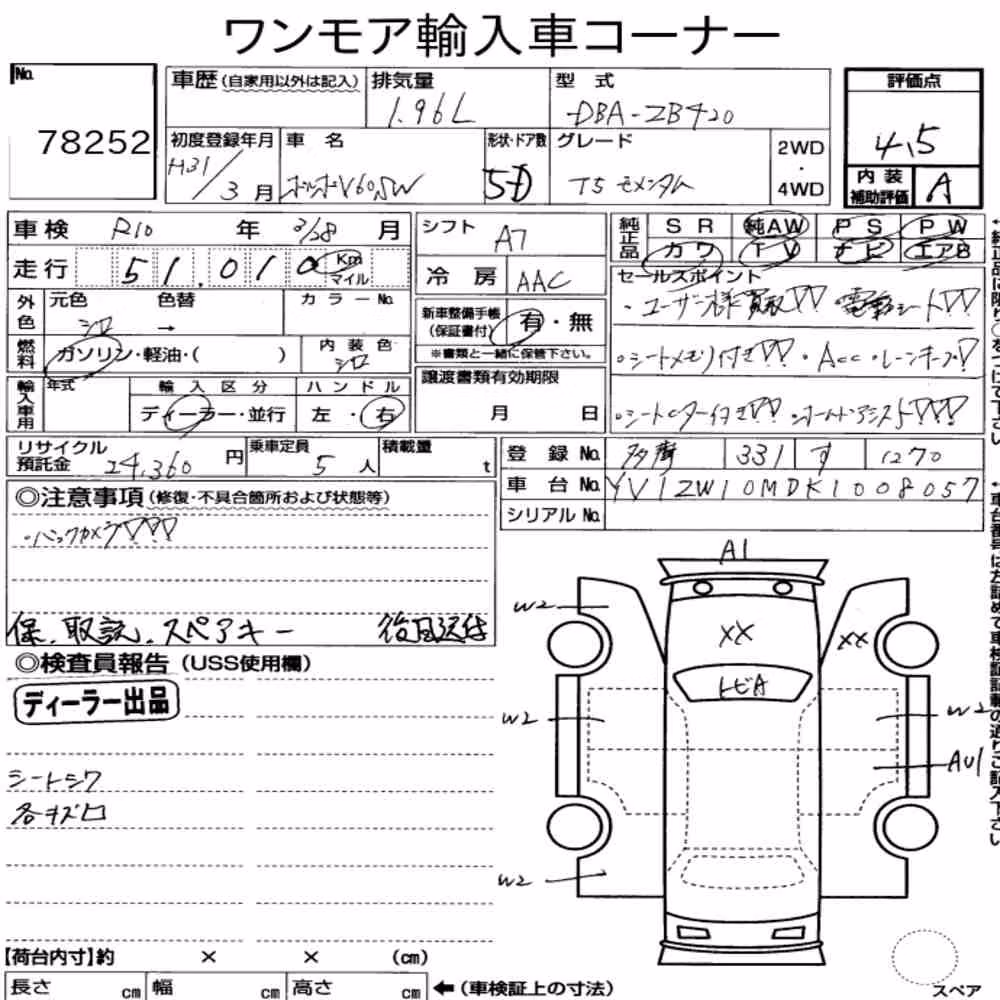 ワンモア輸入車コーナー
No. 78252
車歴 (自家用以外は記入)
排気量 1.96L
型式 DBA-ZB420
評価点 4,5
初度登録年月 H31/3月
車名 ボルボV60,SW
形状・ドア数 5D
グレード T5 モメンタム
2WD・4WD
内装補助評価 A
車検 R10年 3/28月
シフト A7
純正品 SR 純AW PS PW
カワ TV ナビ エアB
走行 51,010 Km マイル
冷房 AAC
セールスポイント
・ユーザー様買取▽▽ 電動シート▽▽
外色 元色 シロ → 色替 カラーNo.
新車整備手帳(保証書付) 有・無
※書類と一緒に保管下さい。
・シートメモリ付き▽▽・Acc・レーンキープ▽
燃料 ガソリン・軽油・( )
内装色 シロ
譲渡書類有効期限 月 日
・シートヒーター付き▽▽▽
輸入車用 年式 輸入区分 ディーラー・並行
ハンドル 左・右
リサイクル預託金 24,360円
乗車定員 5人
積載量 t
登録No. 多摩 331 す 1270
車台No. YV1ZW10MDK1008057
シリアルNo.
◎注意事項(修復・不具合箇所および状態等)
・バックカメラ▽▽▽
保、取説、スペアキー 後日送付
◎検査員報告(USS使用欄)
ディーラー出品
シートシワ
各キズ
A1
W2
XX
XX
トビA
W2
W2
AU1
W2
【荷台内寸】約 × × (cm)
長さ cm 幅 cm 高さ cm ←(車検証上の寸法)
スペア